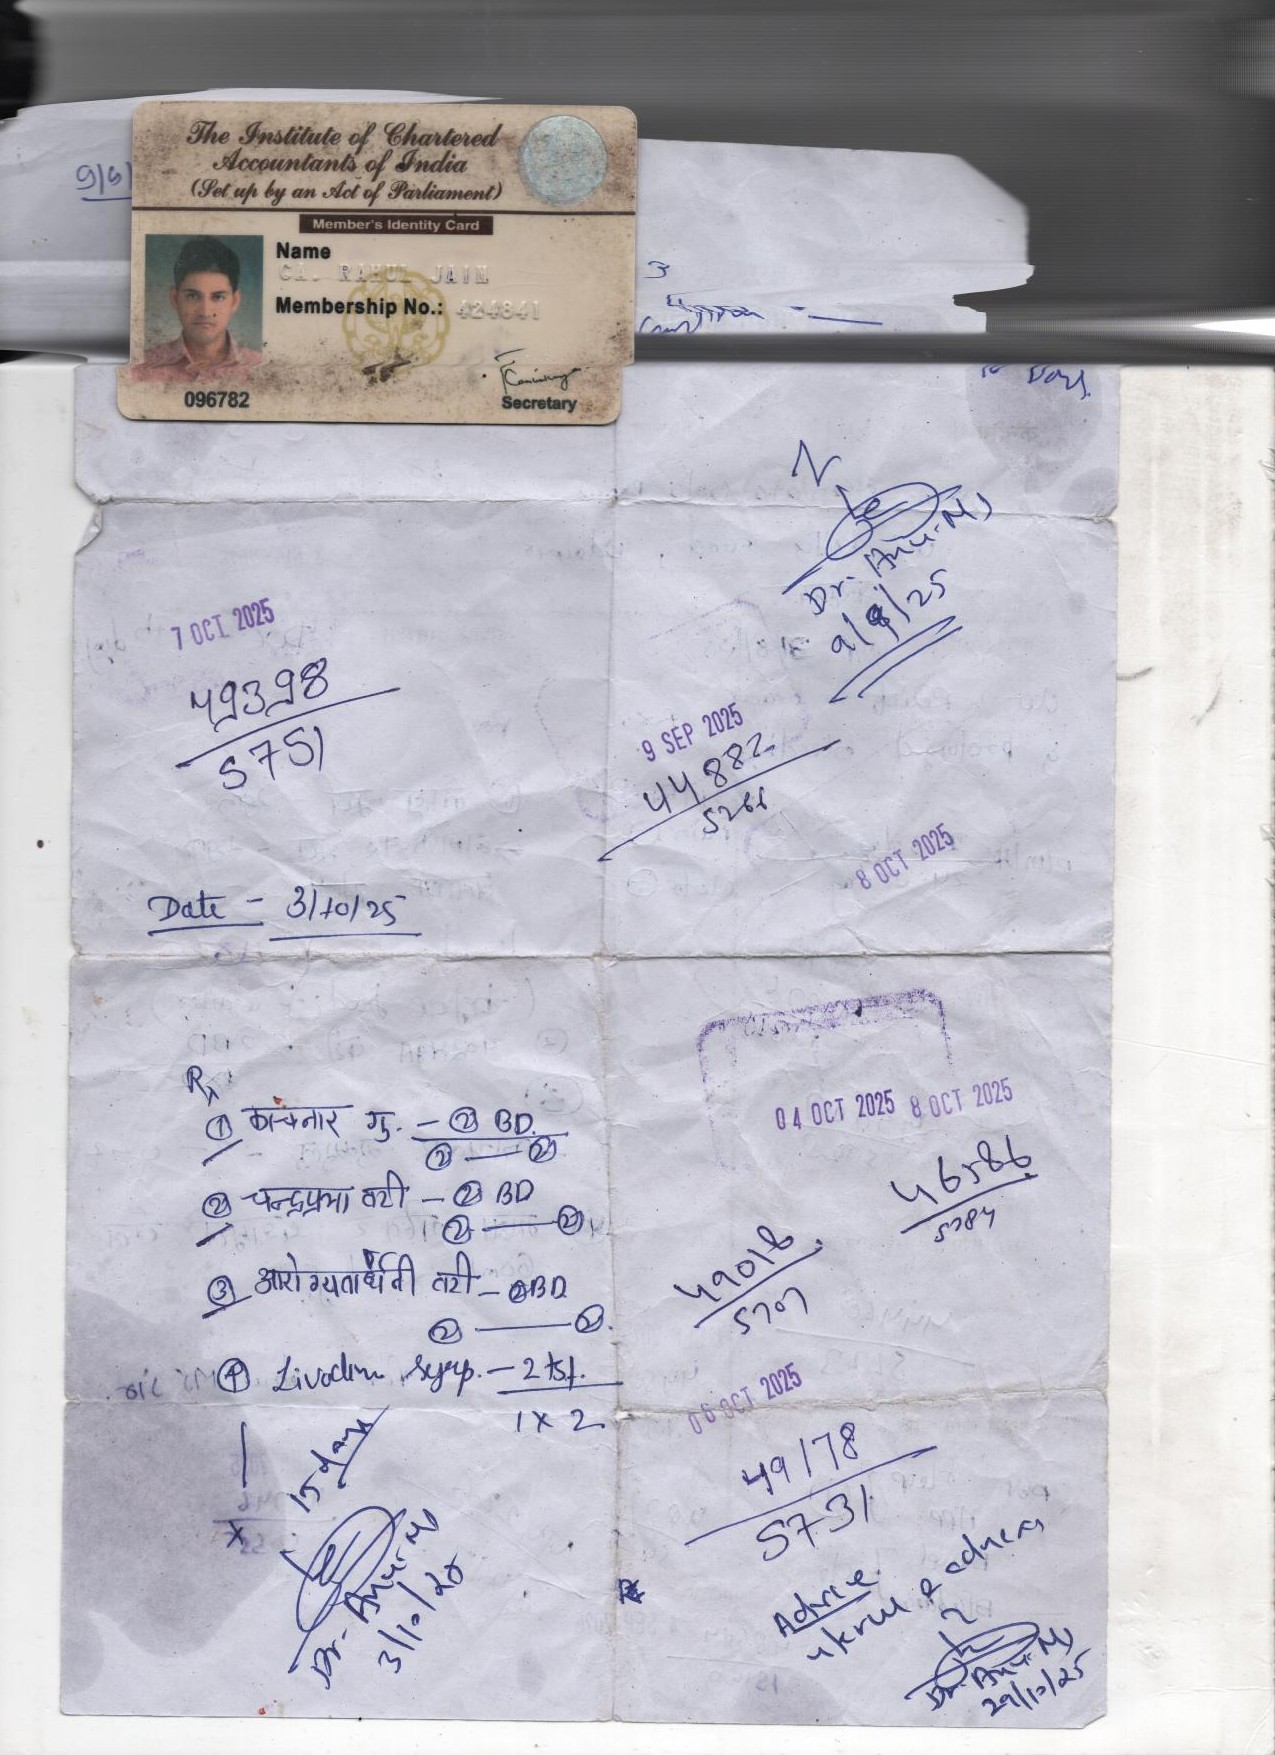 The Institute of Chartered
Accountants of India
(Set up by an Act of Parliament)
Member's Identity Card
Name
CA. RAHUL JAIN
Membership No.: 424841
096782
Secretary
9/9/
3
Days.
Dr. Anu. MD
9/9/25
7 OCT 2025
49398
5751
9 SEP 2025
44882
5266
8 OCT 2025
Date - 3/10/25
Rx
① कांचनार गु. - ② BD.
② — ②
② चन्द्रप्रभा वटी - ② BD
② — ②
③ आरोग्यवर्धिनी वटी - ② BD
② — ②.
④ Syrup. - 2 tsf.
1 x 2
15 days
Dr. Anu. MD
3/10/25
04 OCT 2025
8 OCT 2025
46586
5384
49018
5707
06 OCT 2025
49178
5731
Advice
Dr. Anu. MD
29/10/25